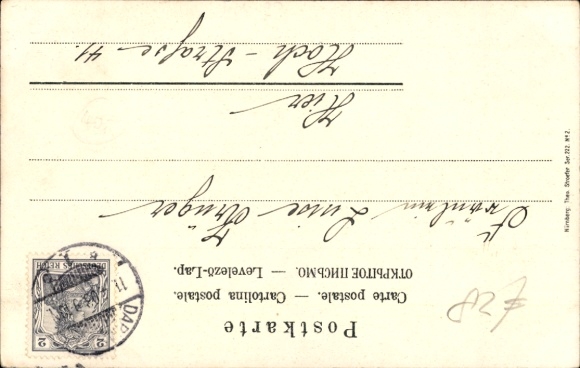 Postkarte
Carte postale. — Cartolina postale.
ОТКРЫТОЕ ПИСЬМО. — Levelező-Lap.
Fräulein Luise Krüger
Hier
Hoch-Strasse 41.
DEUTSCHES REICH
2
2
DAR
Nürnberg: Theo. Stroefer Ser. 292. Nº 2.